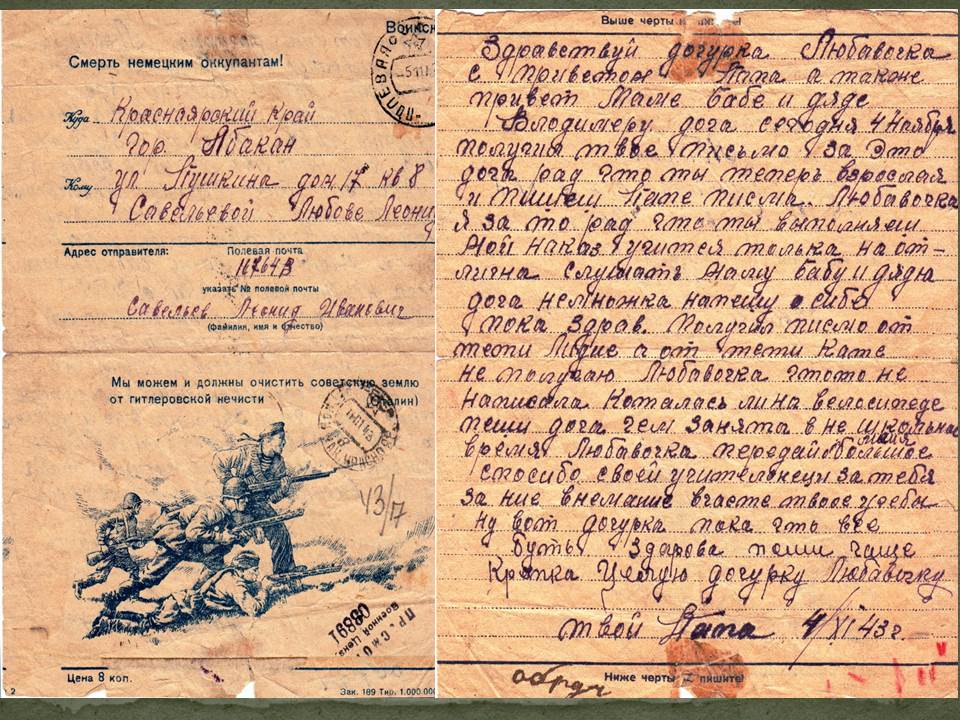 Воинск
Смерть немецким оккупантам!
Куда Красноярский край
гор Абакан
Кому ул Пушкина дом 17 кв 8
Савельевой Любове Леони
Адрес отправителя: Полевая почта
указать № полевой почты
Савельев Леонид Иванович
(фамилия, имя и отчество)
Мы можем и должны очистить советскую землю
от гитлеровской нечисти (Сталин)
43/17
06891
Военной Цена
Цена 8 коп.
2 Зак. 189 Тир. 1.000.000
ПОЛЕВАЯ
Выше черты не пишите!
Здравствуй догурка Любавочка
с приветом Папа а также
привет Маме бабе и дяде
Володимеру дога сегодня 4 Ноября
получил твое письмо за это
дога рад что ты теперь взрослая
и пишеш Папе писма. Любавочка
я за то рад что ты выполняеш
мой наказ учится толька на от-
лична слушать маму бабу и дядю
дога немножка напешу о сибе
пока здрав. Получил писмо от
тети а от тети Кате
не получаю Любавочка чтото не
написала Коталась ли на велосипеде
пеши дога чем занята в не школьное
время Любавочка передай большое
спосибо своей учительнецы за тебя
за ние внемание вчасте твоее учебы
ну вот догурка пока что все
Буть здарова пеши чаще
Крепка Целую догурку Любавочку
твой Папа 4/XI 43 г.
Ниже черты не пишите!